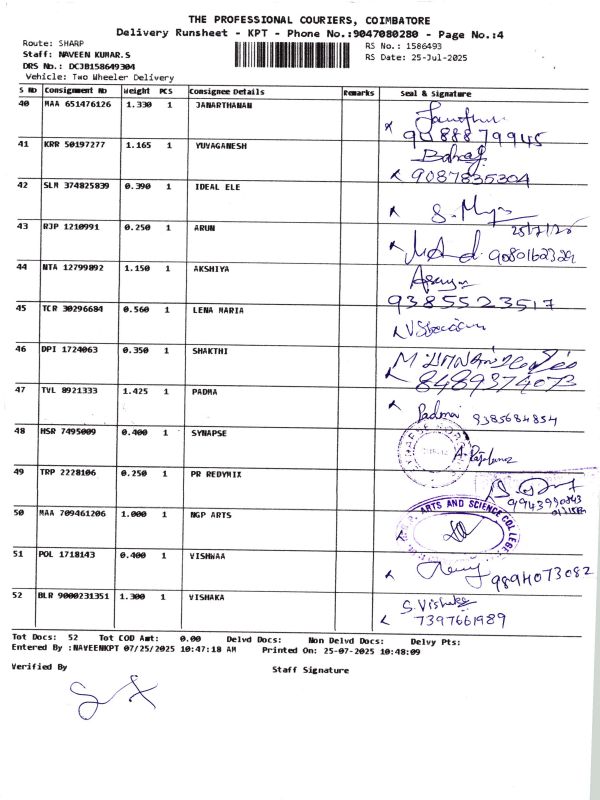 THE PROFESSIONAL COURIERS, COIMBATORE
Delivery Runsheet - KPT - Phone No.:9047080280 - Page No.:4
Route: SHARP
RS No.: 1586493
Staff: NAVEEN KUMAR.S
RS Date: 25-Jul-2025
DRS No.: DCJB158649304
Vehicle: Two Wheeler Delivery
S No Consignment No Weight PCS Consignee Details Remarks Seal & Signature
40 MAA 651476126 1.330 1 JANARTHANAN
41 KRR 50197277 1.165 1 YUVAGANESH
9087835304
42 SLM 374825839 0.390 1 IDEAL ELE
43 RJP 1210991 0.250 1 ARUN
25/7/25
9080162329
44 NTA 12799892 1.150 1 AKSHIYA
9385523517
45 TCR 30296684 0.560 1 LENA MARIA
46 DPI 1724063 0.350 1 SHAKTHI
8489374073
47 TVL 8921333 1.425 1 PADMA
Padma 9385684854
48 HSR 7495009 0.400 1 SYNAPSE
49 TRP 2228106 0.250 1 PR REDYMIX
50 MAA 709461206 1.000 1 NGP ARTS
ARTS AND SCIENCE COLLEGE
51 POL 1718143 0.400 1 VISHWAA
9894073082
52 BLR 9000231351 1.300 1 VISHAKA
S. Vishaka
7397661989
Tot Docs: 52 Tot COD Amt: 0.00 Delvd Docs: Non Delvd Docs: Delvy Pts:
Entered By :NAVEENKPT 07/25/2025 10:47:18 AM Printed On: 25-07-2025 10:48:09
Verified By
Staff Signature